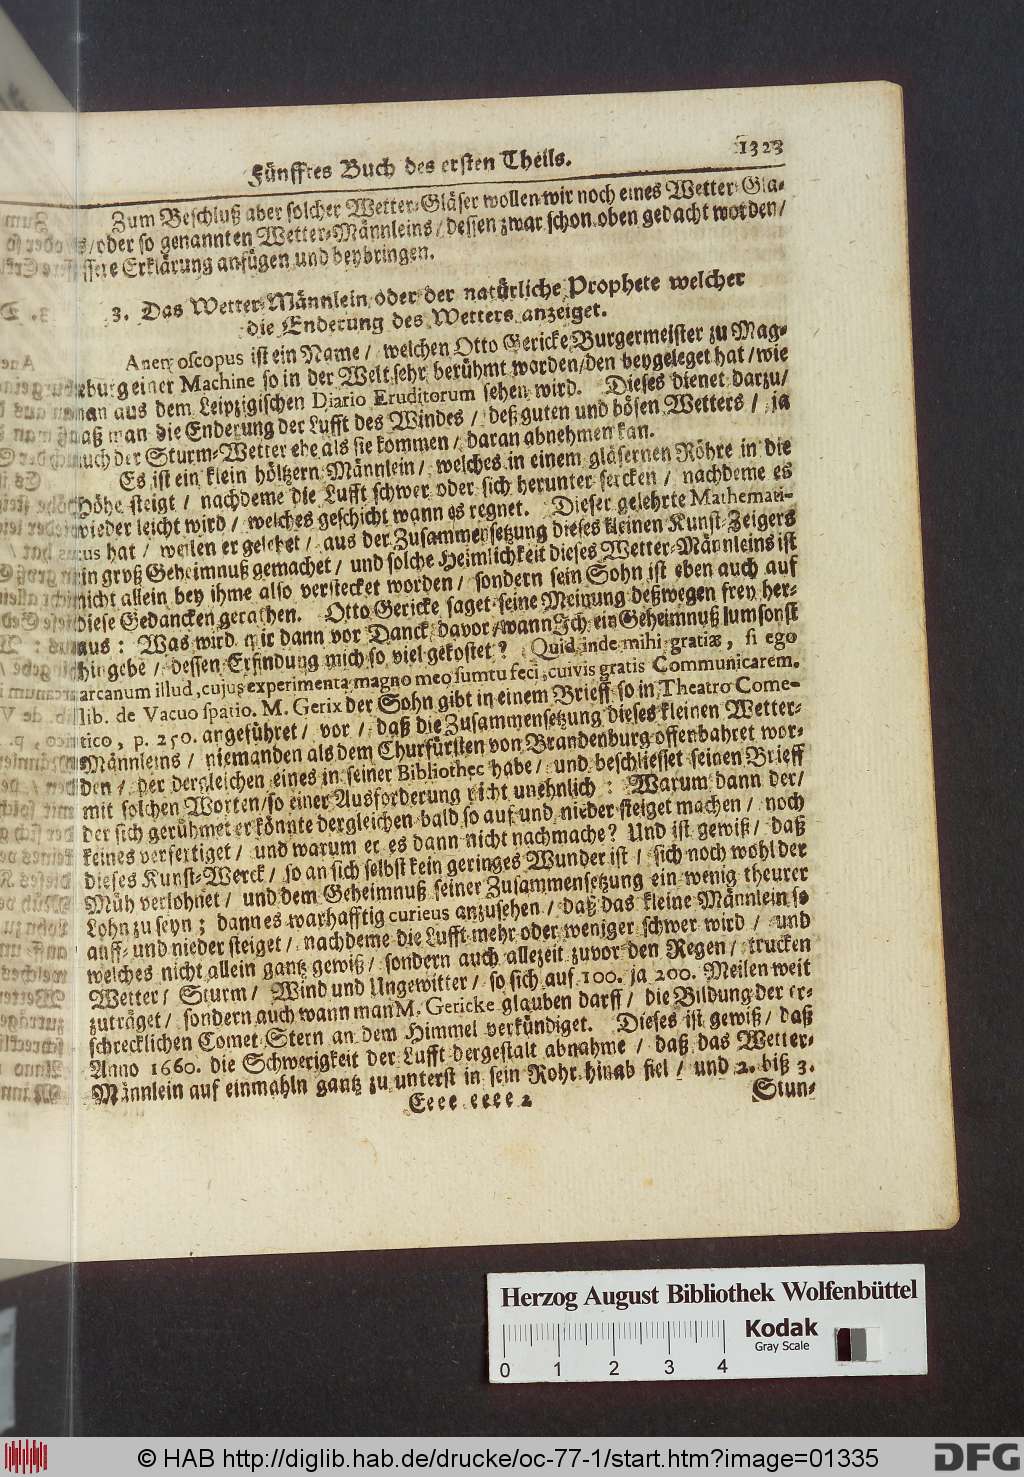 Fünfftes Buch des ersten Theils. 1323
Zum Beschluß aber solcher Wetter-Gläser wollen wir noch eines Wetter-Gla-
s/ oder so genannten Wetter-Männleins/ dessen zwar schon oben gedacht worden/
Erklärung anfügen und beybringen.
3. Das Wetter-Männlein oder der natürliche Prophete welcher
die Enderung des Wetters anzeiget.
Anemoscopus ist ein Name/ welchen Otto Gericke Burgermeister zu Mag-
eburg einer Machine so in der Welt sehr berühmt worden/ den beygeleget hat/ wie
man aus dem Leipzigischen Diario Eruditorum sehen wird. Dieses dienet darzu/
daß man die Enderung der Lufft des Windes/ deß guten und bösen Wetters/ ja
auch der Sturm-Wetter ehe als sie kommen/ daran abnehmen kan.
Es ist ein klein höltzern Männlein/ welches in einem gläsernen Röhre in die
Höhe steigt/ nachdeme die Lufft schwer oder sich herunter sencken/ nachdeme es
wieder leicht wird/ welches geschicht wann es regnet. Dieser gelehrte Mathemati-
cus hat/ weilen er gelehet/ aus der Zusammensetzung dieses kleinen Kunst-Zeigers
ein groß Geheimnuß gemachet/ und solche Heimlichkeit dieses Wetter-Männleins ist
nicht allein bey ihme also verstecket worden/ sondern sein Sohn ist eben auch auf
diese Gedancken gerathen. Otto Gericke saget seine Meinung deßwegen frey her-
aus: Was wird mir dann vor Danck davor/ wann Ich ein Geheimnuß lumsonst
hingebe/ dessen Erfindung mich so viel gekostet? Quid inde mihi gratiæ, si ego
arcanum illud, cujus experimenta magno meo sumtu feci, cuivis gratis Communicarem.
lib. de Vacuo spatio. M. Gerix der Sohn gibt in einem Brieff so in Theatro Come-
tico, p. 250. angeführet/ vor/ daß die Zusammensetzung dieses kleinen Wetter-
Männleins/ niemanden als dem Churfürsten von Brandenburg offenbahret wor-
den/ der dergleichen eines in seiner Bibliothec habe/ und beschliesset seinen Brieff
mit solchen Worten/ so einer Ausforderung nicht unehnlich: Warum dann der/
der sich gerühmet er könnte dergleichen bald so auf und nieder steiget machen/ noch
keines verfertiget/ und warum er es dann nicht nachmache? Und ist gewiß/ daß
dieses Kunst-Werck/ so an sich selbst kein geringes Wunder ist/ sich noch wohl der
Müh verlohnet/ und dem Geheimnuß seiner Zusammensetzung ein wenig theurer
Lohn zu seyn; dann es warhafftig curieus anzusehen/ daß das kleine Männlein so
auff- und nieder steiget/ nachdeme die Lufft mehr oder weniger schwer wird/ und
welches nicht allein gantz gewiß/ sondern auch allezeit zuvor den Regen/ trucken
Wetter/ Sturm/ Wind und Ungewitter/ so sich auf 100. ja 200. Meilen weit
zuträget/ sondern auch wann man M. Gericke glauben darff/ die Bildung der er-
schrecklichen Comet-Stern an dem Himmel verkündiget. Dieses ist gewiß/ daß
Anno 1660. die Schwerigkeit der Lufft dergestalt abnahme/ daß das Wetter-
Männlein auf einmahln gantz zu unterst in sein Rohr hinab fiel/ und 2. biß 3.
Eeee eeee 2 Stun-
Herzog August Bibliothek Wolfenbüttel
Kodak
Gray Scale
0 1 2 3 4
© HAB http://diglib.hab.de/drucke/oc-77-1/start.htm?image=01335
DFG